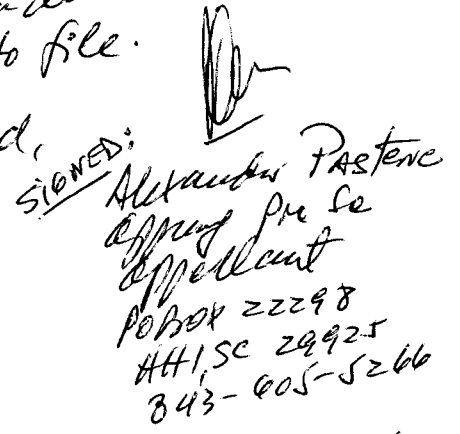 to file.
d,
SIGNED:
Alexander PASTENE
appearing Pro Se
appellant
PO BOX 22298
HHI, SC 29925
843-605-5266